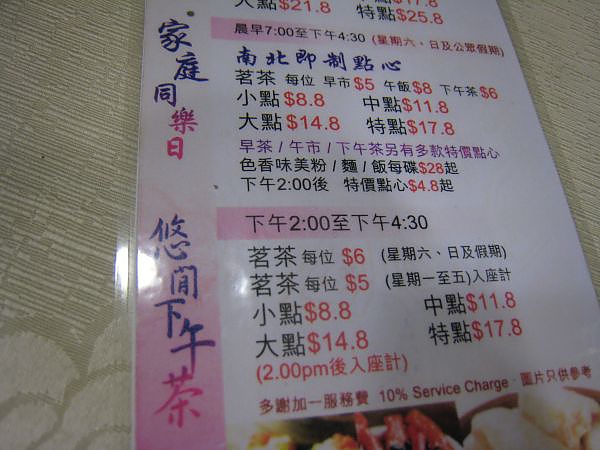 大點$21.8 特點$25.8
家庭同樂日
晨早7:00至下午4:30 (星期六、日及公眾假期)
南北即制點心
茗茶 每位 早市$5 午飯$8 下午茶$6
小點$8.8 中點$11.8
大點$14.8 特點$17.8
早茶 / 午市 / 下午茶另有多款特價點心
色香味美粉 / 麵 / 飯每碟$28起
下午2:00後 特價點心$4.8起
悠閒下午茶
下午2:00至下午4:30
茗茶 每位 $6 (星期六、日及假期)
茗茶 每位 $5 (星期一至五)入座計
小點$8.8 中點$11.8
大點$14.8 特點$17.8
(2.00pm後入座計)
多謝加一服務費 10% Service Charge 圖片只供參考